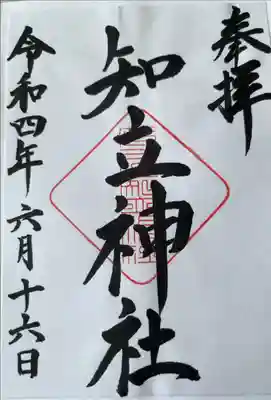 奉拝
知立神社
令和四年六月十六日